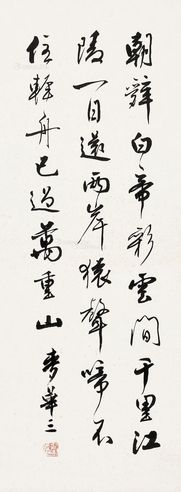 朝辭白帝彩雲間千里江
陵一日還兩岸猿聲啼不
住輕舟已過萬重山 麥華三